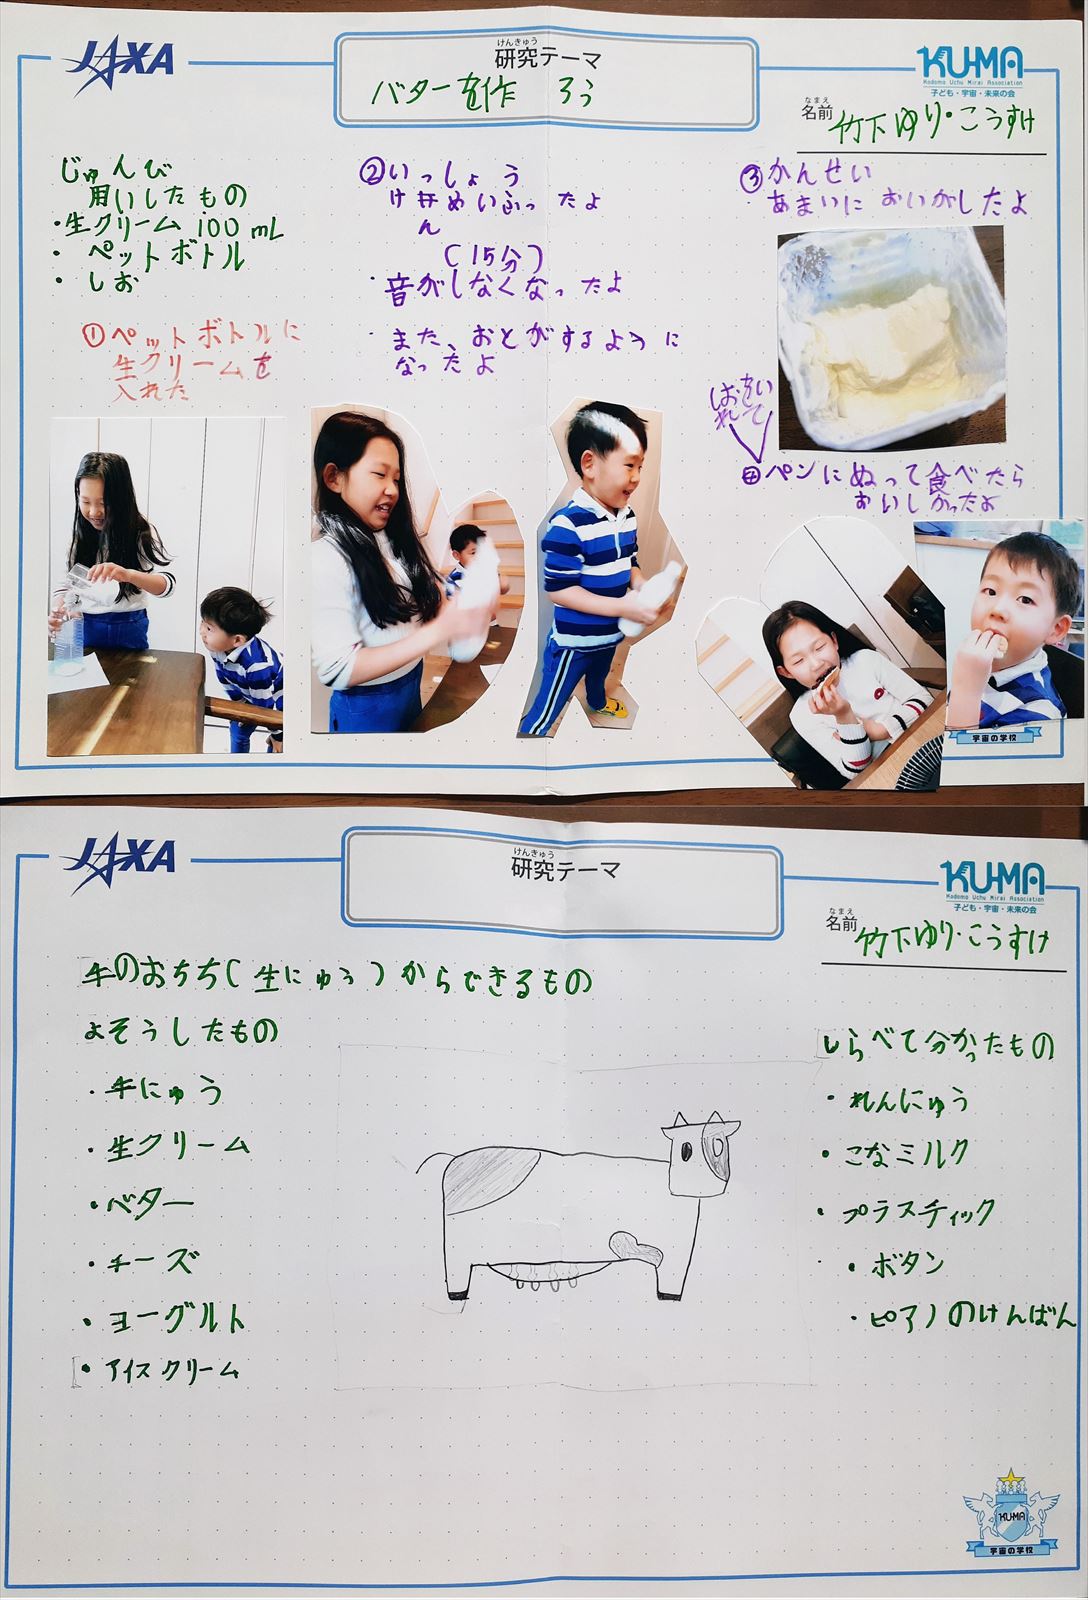 JAXA
けんきゅう
研究テーマ
バターを作ろう
KU-MA
Kodomo Uchu Mirai Association
子ども・宇宙・未来の会
なまえ
名前
竹下ゆり・こうすけ
じゅんび
用いしたもの
・生クリーム 100mL
・ペットボトル
・しお
①ペットボトルに
生クリームを
入れた
②いっしょう
けんめいふったよ
(15分)
・音がしなくなったよ
・また、おとがするように
なったよ
③かんせい
・あまいにおいがしたよ
しおをい
れて
④パンにぬって食べたら
おいしかったよ
宇宙の学校
JAXA
けんきゅう
研究テーマ
KU-MA
Kodomo Uchu Mirai Association
子ども・宇宙・未来の会
なまえ
名前
竹下ゆり・こうすけ
牛のおちち(生にゅう)からできるもの
よそうしたもの
・牛にゅう
・生クリーム
・バター
・チーズ
・ヨーグルト
・アイスクリーム
しらべて分かったもの
・れんにゅう
・こなミルク
・プラスティック
・ボタン
・ピアノのけんばん
KU-MA
宇宙の学校